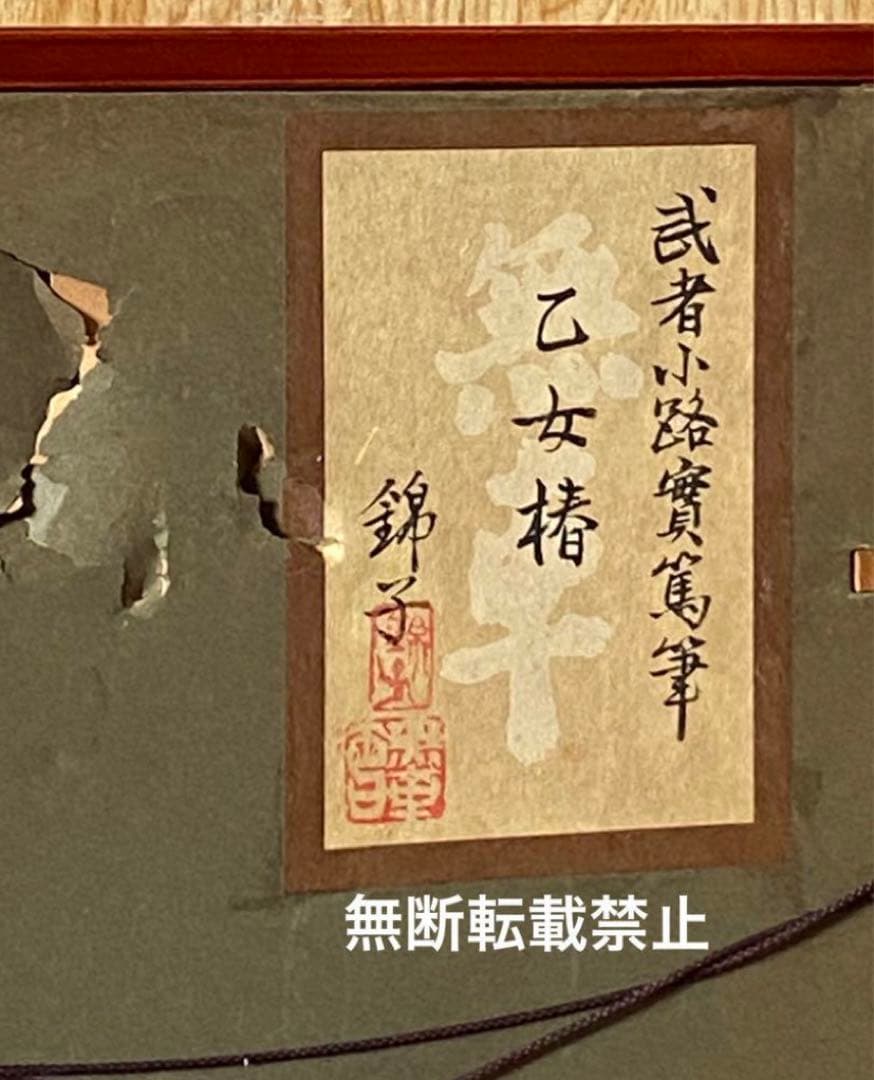 武者小路實篤筆
乙女椿
錦子
無断転載禁止